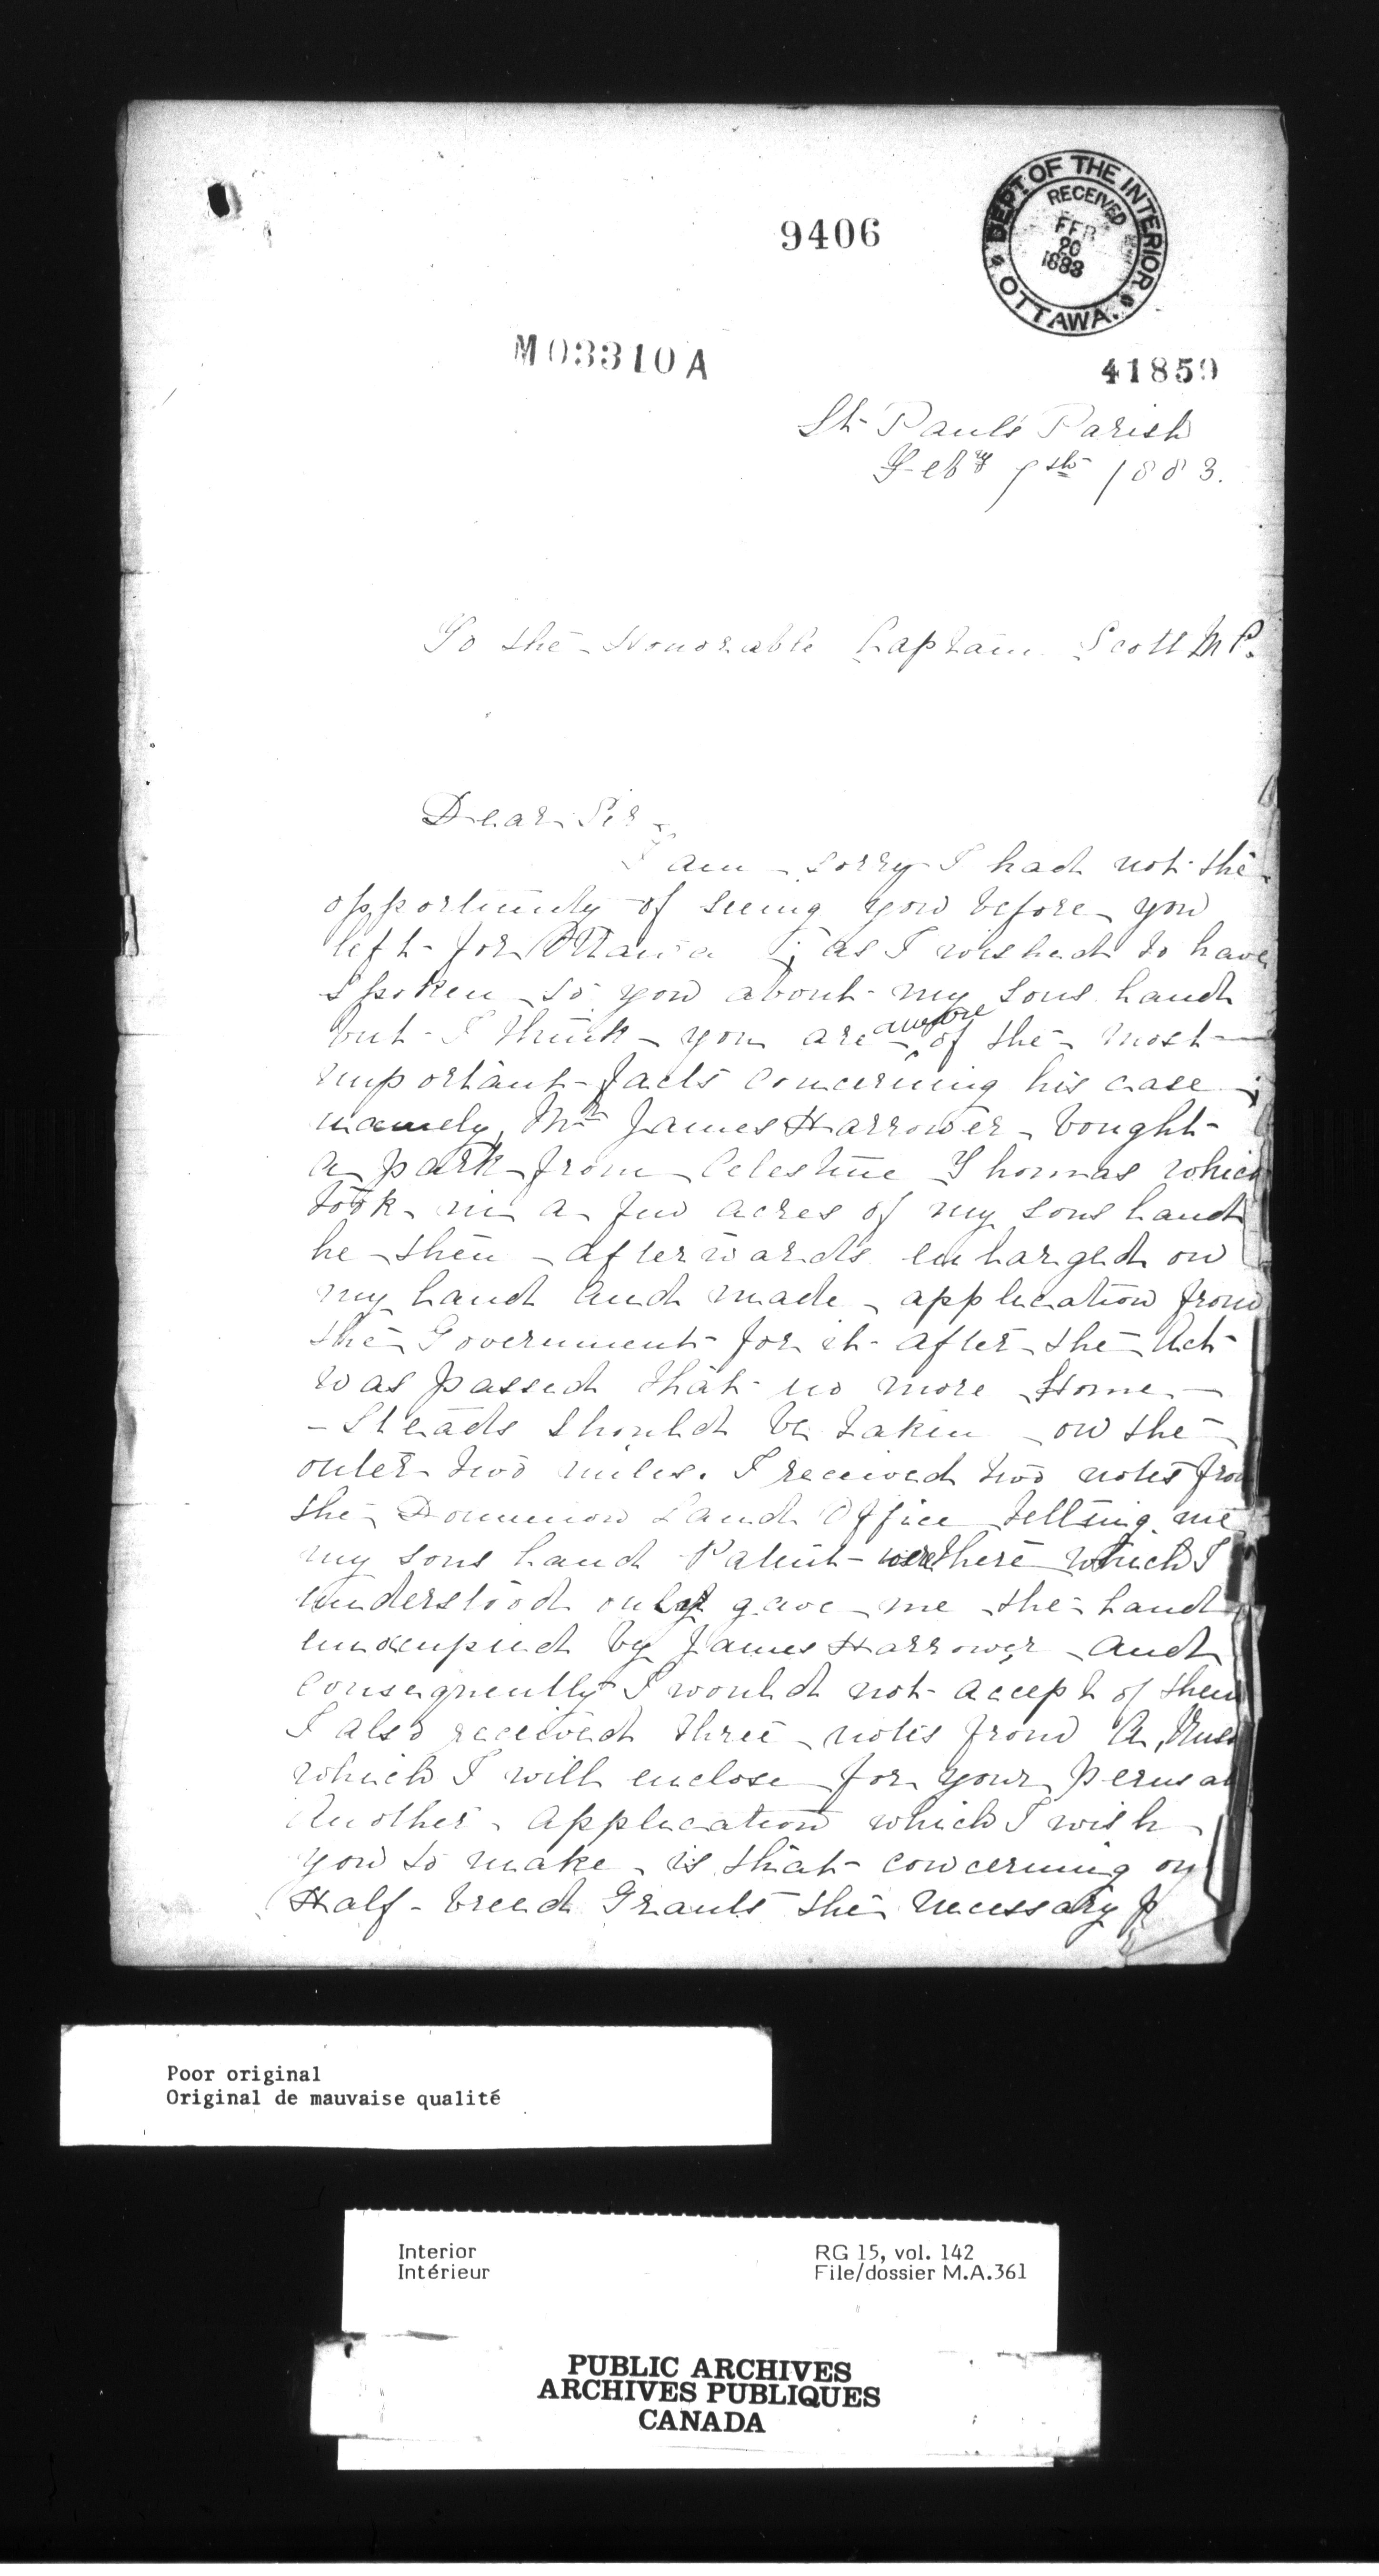 9406
DEPT OF THE INTERIOR
RECEIVED
FEB
20
1883
OTTAWA.
M03310A
41859
St Pauls Parish
Feby 7th 1883.
To the Honorable Captain Scott M P.
Dear Sir
I am sorry I had not the
opportunity of seeing you before you
left for Ottawa ; as I wished to have
spoken to you about my sons land
but I think you are aware of the most
important facts concerning his case ;
namely, Mr James Harrower bought
a park from Celestine Thomas which
took in a few acres of my sons land
he then afterwards enlarged on
my land and made application from
the Government for it after the Act
was passed that no more Home
-steads should be taken on the
outer two miles. I received two notes from
the Dominion Land Office telling me
my sons land Patent were there which I
understood only gave me the land
unoccupied by James Harrower and
consequently I would not accept of them
I also received three notes from A,
which I will enclose for your perusal
Another application which I wish
you to make is that concerning
Half-breed Grants the necessary
Poor original
Original de mauvaise qualité
Interior
Intérieur
RG 15, vol. 142
File/dossier M.A.361
PUBLIC ARCHIVES
ARCHIVES PUBLIQUES
CANADA